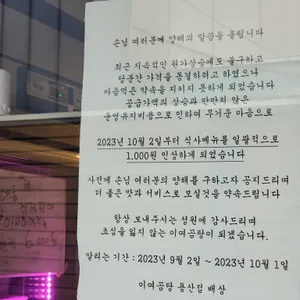 손님 여러분께 양해의 말씀을 올립니다
최근 지속적인 원가상승에도 불구하고
당분간 가격을 동결하려고 하였으나
마음먹은 약속을 지키지 못하게 되었습니다
공급가액의 상승과 만만치 않은
운영유지비용으로 인하여 무거운 마음으로
2023년 10월 2일부터 식사메뉴를 일괄적으로
1,000원 인상하게 되었습니다
사전에 손님 여러분의 양해를 구하고자 공지드리며
더 좋은 맛과 서비스로 모실것을 약속드립니다
항상 보내주시는 성원에 감사드리며
초심을 잃지 않는 이여곰탕이 되겠습니다.
알리는 기간 : 2023년 9월 2일 ~ 2023년 10월 1일
이여곰탕 용산점 배상